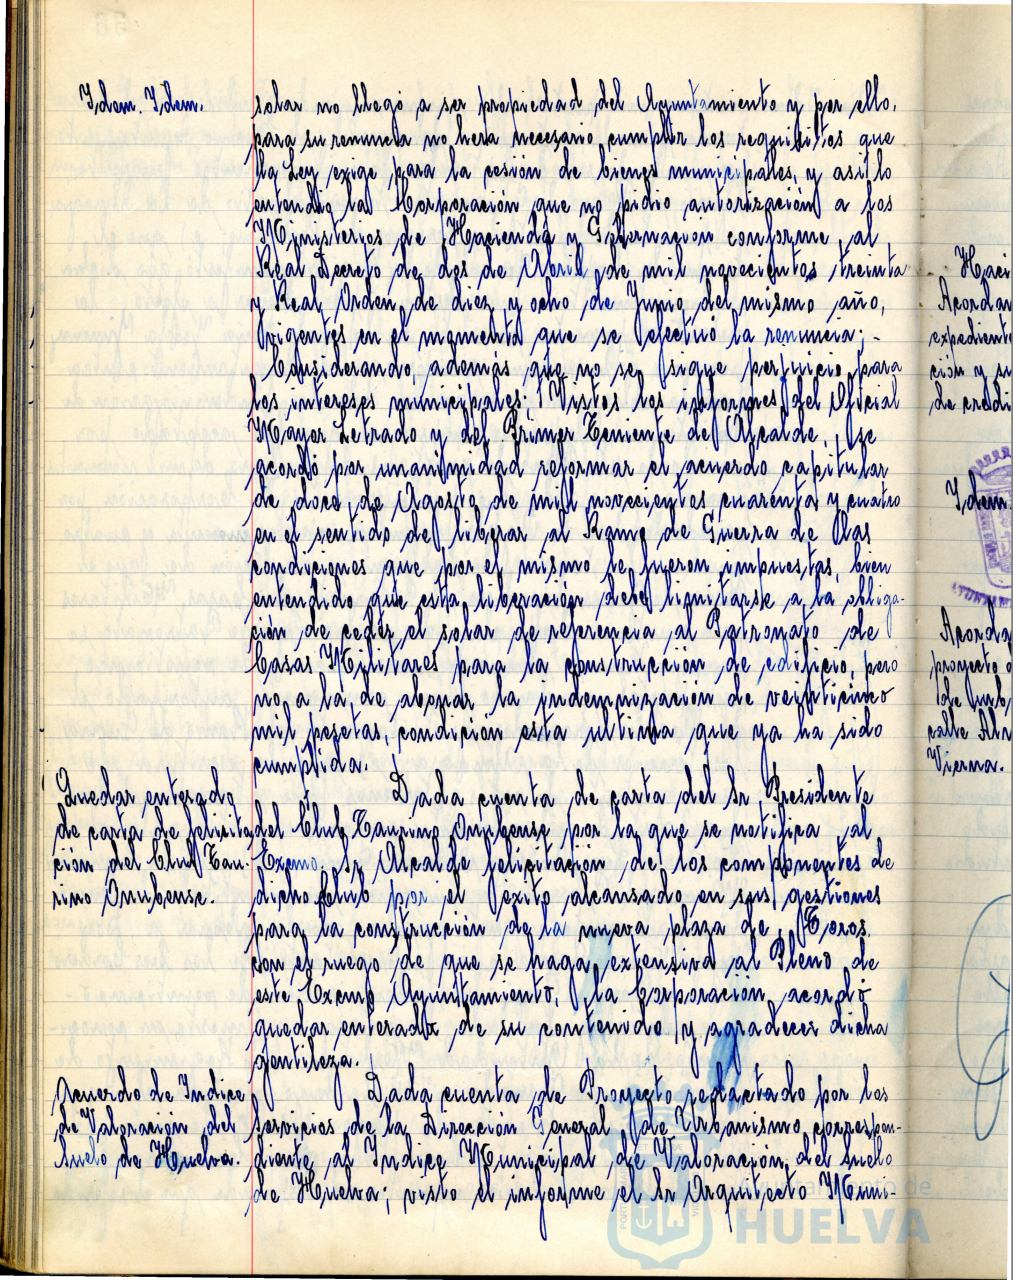 Idem. Idem.
solar no llegó a ser propiedad del Ayuntamiento y por ello,
para su renuncia no hera necesario cumplir los requisitos que
la Ley exige para la cesión de bienes municipales, y asi lo
entendió la Corporación que no pidió autorización a los
Ministerios de Hacienda y Gobernación conforme al
Real Decreto de dos de Abril de mil novecientos treinta
y Real Orden de diez y ocho de Junio del mismo año,
vigentes en el momento que se efectuó la renuncia;.-
Considerando, además que no se sigue perjuicio para
los intereses municipales: Vistos los informes del Oficial
Mayor Letrado y del Primer Teniente de Alcalde, se
acordó por unanimidad reformar el acuerdo capitular
de doce de Agosto de mil novecientos cuarenta y cuatro
en el sentido de liberar al Ramo de Guerra de las
condiciones que por el mismo le fueron impuestas, bien
entendido que esta liberación debe limitarse a la obliga-
ción de ceder el solar de referencia al Patronato de
Casas Militares para la construcción de edificio, pero
no a la de abonar la indemnización de veinticinco
mil pesetas, condición esta ultima que ya ha sido
cumplida.
Quedar enterado
de carta de felicita
ción del Club Tau-
rino Onubense.
Dada cuenta de carta del Sr. Presidente
del Club Taurino Onubense por la que se notifica al
Excmo. Sr. Alcalde felicitación de los componentes de
dicho Club por el éxito alcansado en sus gestiones
para la construcción de la nueva plaza de Toros,
con el ruego de que se haga extensiva al Pleno de
este Excmo Ayuntamiento, la Corporación acordó
quedar enterada de su contenido y agradecer dicha
gentileza.
Acuerdo de Indice
de Valoración del
Suelo de Huelva.
Dada cuenta de Proyecto redactado por los
Servicios de la Dirección General de Urbanismo correspon-
diente al Indice Municipal de Valoración del suelo
de Huelva; visto el informe el Sr Arquitecto Muni-
Haci
Acordar
expediente
ción y su
de credi
Idem.
Acorda
proyecto d
de
calle
Vierna.
Ayuntamiento de
HUELVA